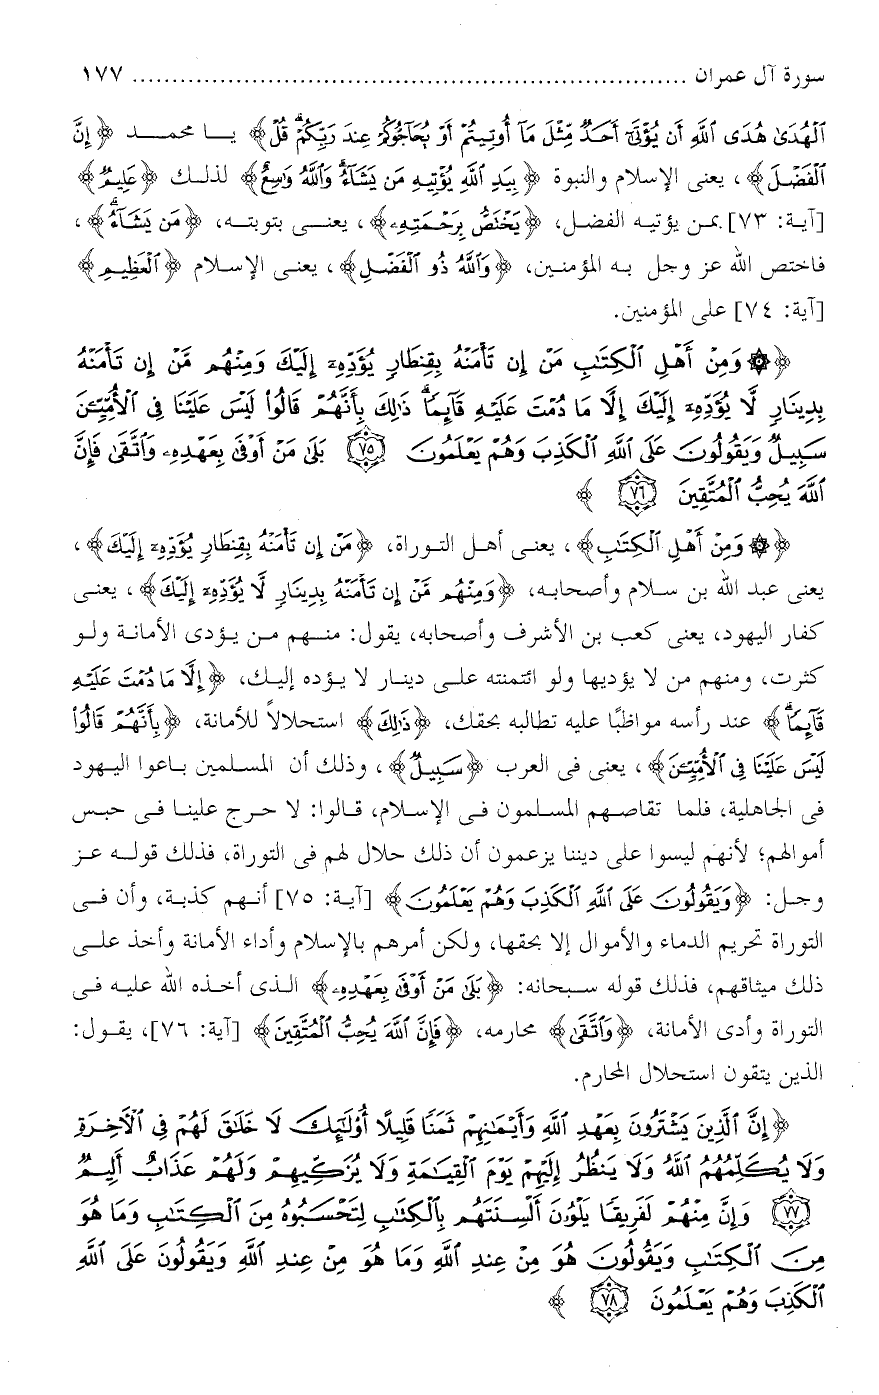 سورة آل عمران ..................................................................... ١٧٧
ٱلْهُدَىٰ هُدَى ٱللَّهِ أَن يُؤْتَىٰٓ أَحَدٌ مِّثْلَ مَآ أُوتِيتُمْ أَوْ يُحَآجُّوكُمْ عِندَ رَبِّكُمْ ۗ قُلْ﴾ يـا محمـد ﴿إِنَّ
ٱلْفَضْلَ﴾، يعنى الإسلام والنبوة ﴿بِيَدِ ٱللَّهِ يُؤْتِيهِ مَن يَشَآءُ ۗ وَٱللَّهُ وَٰسِعٌ﴾ لذلك ﴿عَلِيمٌ﴾
[آية: ٧٣] بمن يؤتيه الفضل، ﴿يَخْتَصُّ بِرَحْمَتِهِۦ﴾، يعنى بتوبته، ﴿مَن يَشَآءُ ۗ﴾،
فاختص الله عز وجل به المؤمنين، ﴿وَٱللَّهُ ذُو ٱلْفَضْلِ﴾، يعنى الإسلام ﴿ٱلْعَظِيمِ﴾
[آية: ٧٤] على المؤمنين.
﴿۞ وَمِنْ أَهْلِ ٱلْكِتَٰبِ مَنْ إِن تَأْمَنْهُ بِقِنطَارٍ يُؤَدِّهِۦٓ إِلَيْكَ وَمِنْهُم مَّنْ إِن تَأْمَنْهُ
بِدِينَارٍ لَّا يُؤَدِّهِۦٓ إِلَيْكَ إِلَّا مَا دُمْتَ عَلَيْهِ قَآئِمًا ۗ ذَٰلِكَ بِأَنَّهُمْ قَالُوا۟ لَيْسَ عَلَيْنَا فِى ٱلْأُمِّيِّـۧنَ
سَبِيلٌ وَيَقُولُونَ عَلَى ٱللَّهِ ٱلْكَذِبَ وَهُمْ يَعْلَمُونَ ٧٥ بَلَىٰ مَنْ أَوْفَىٰ بِعَهْدِهِۦ وَٱتَّقَىٰ فَإِنَّ
ٱللَّهَ يُحِبُّ ٱلْمُتَّقِينَ ٧٦ ﴾
﴿۞ وَمِنْ أَهْلِ ٱلْكِتَٰبِ﴾، يعنى أهل التوراة، ﴿مَنْ إِن تَأْمَنْهُ بِقِنطَارٍ يُؤَدِّهِۦٓ إِلَيْكَ﴾،
يعنى عبد الله بن سلام وأصحابه، ﴿وَمِنْهُم مَّنْ إِن تَأْمَنْهُ بِدِينَارٍ لَّا يُؤَدِّهِۦٓ إِلَيْكَ﴾، يعنى
كفار اليهود، يعنى كعب بن الأشرف وأصحابه، يقول: منهم من يؤدى الأمانة ولو
كثرت، ومنهم من لا يؤديها ولو ائتمنته على دينار لا يؤده إليك، ﴿إِلَّا مَا دُمْتَ عَلَيْهِ
قَآئِمًا ۗ﴾ عند رأسه مواظبًا عليه تطالبه بحقك، ﴿ذَٰلِكَ﴾ استحلالاً للأمانة، ﴿بِأَنَّهُمْ قَالُوا۟
لَيْسَ عَلَيْنَا فِى ٱلْأُمِّيِّـۧنَ﴾، يعنى فى العرب ﴿سَبِيلٌ﴾، وذلك أن المسلمين باعوا اليهود
فى الجاهلية، فلما تقاصهم المسلمون فى الإسلام، قالوا: لا حرج علينا فى حبس
أموالهم؛ لأنهم ليسوا على ديننا يزعمون أن ذلك حلال لهم فى التوراة، فذلك قوله عز
وجل: ﴿وَيَقُولُونَ عَلَى ٱللَّهِ ٱلْكَذِبَ وَهُمْ يَعْلَمُونَ﴾ [آية: ٧٥] أنهم كذبة، وأن فى
التوراة تحريم الدماء والأموال إلا بحقها، ولكن أمرهم بالإسلام وأداء الأمانة وأخذ على
ذلك ميثاقهم، فذلك قوله سبحانه: ﴿بَلَىٰ مَنْ أَوْفَىٰ بِعَهْدِهِۦ﴾ الذى أخذه الله عليه فى
التوراة وأدى الأمانة، ﴿وَٱتَّقَىٰ﴾ محارمه، ﴿فَإِنَّ ٱللَّهَ يُحِبُّ ٱلْمُتَّقِينَ﴾ [آية: ٧٦]، يقول:
الذين يتقون استحلال المحارم.
﴿إِنَّ ٱلَّذِينَ يَشْتَرُونَ بِعَهْدِ ٱللَّهِ وَأَيْمَٰنِهِمْ ثَمَنًا قَلِيلًا أُو۟لَٰٓئِكَ لَا خَلَٰقَ لَهُمْ فِى ٱلْأَخِرَةِ
وَلَا يُكَلِّمُهُمُ ٱللَّهُ وَلَا يَنظُرُ إِلَيْهِمْ يَوْمَ ٱلْقِيَٰمَةِ وَلَا يُزَكِّيهِمْ وَلَهُمْ عَذَابٌ أَلِيمٌ
٧٧ وَإِنَّ مِنْهُمْ لَفَرِيقًا يَلْوُۥنَ أَلْسِنَتَهُم بِٱلْكِتَٰبِ لِتَحْسَبُوهُ مِنَ ٱلْكِتَٰبِ وَمَا هُوَ
مِنَ ٱلْكِتَٰبِ وَيَقُولُونَ هُوَ مِنْ عِندِ ٱللَّهِ وَمَا هُوَ مِنْ عِندِ ٱللَّهِ وَيَقُولُونَ عَلَى ٱللَّهِ
ٱلْكَذِبَ وَهُمْ يَعْلَمُونَ ٧٨ ﴾